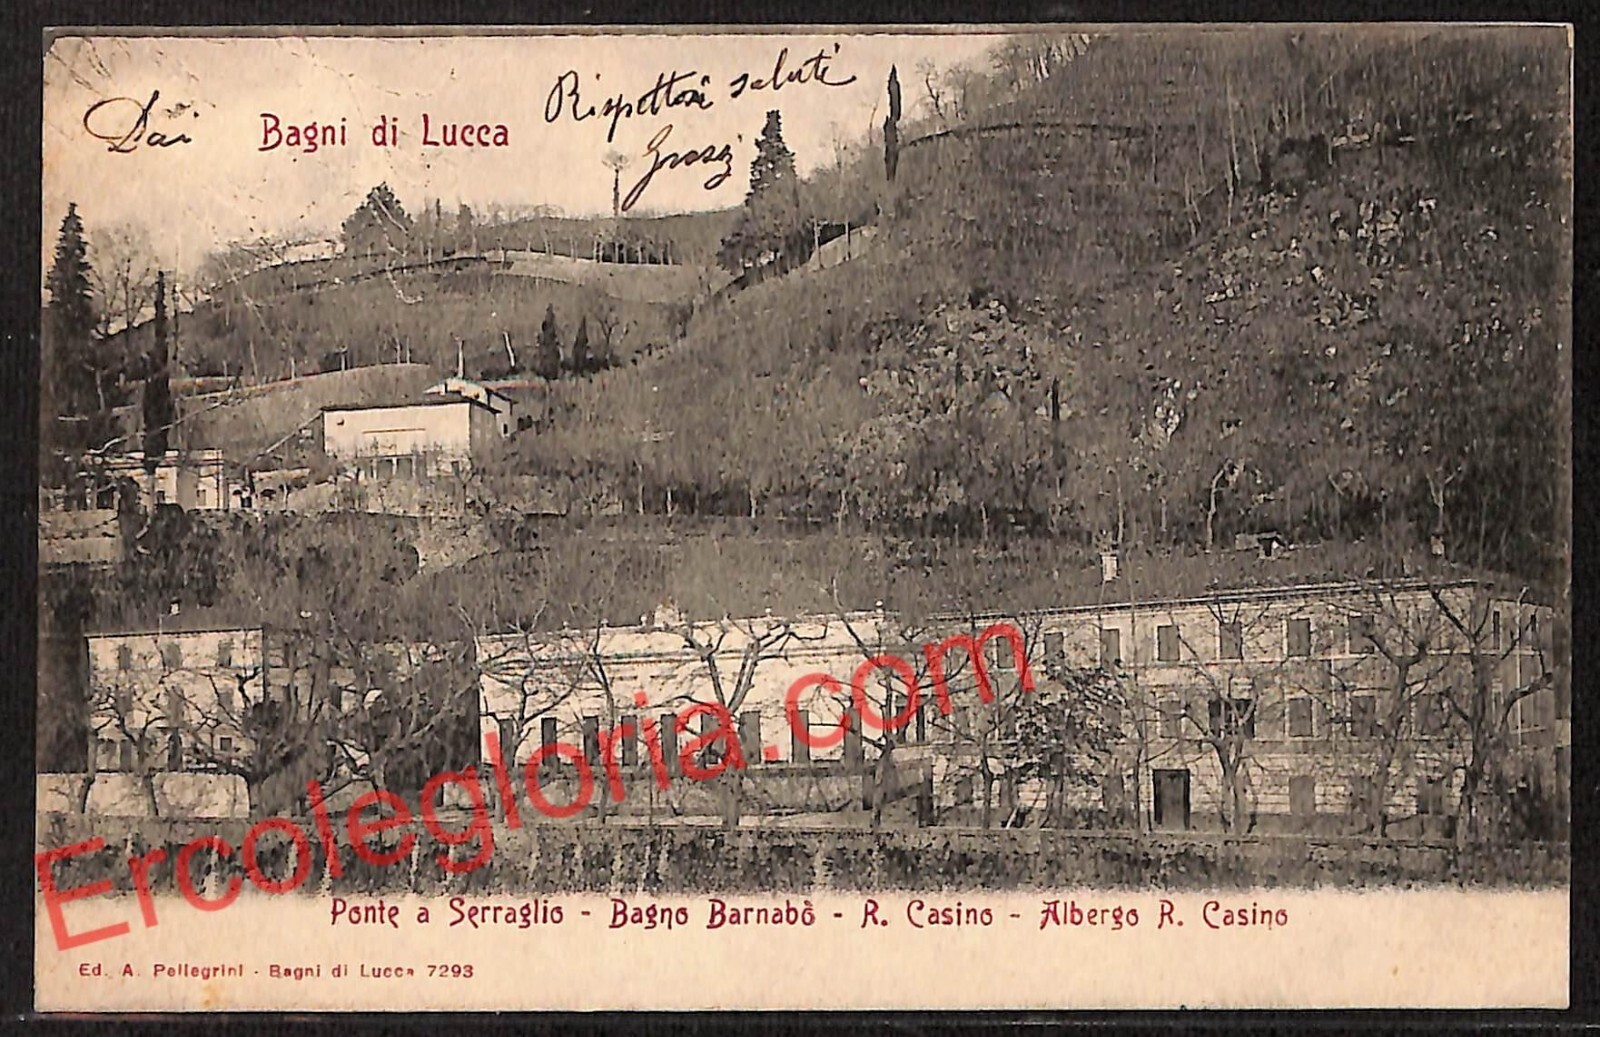 Dai Bagni di Lucca
Rispettosi saluti
Grassi
Ercolegloria.com
Ponte a Serraglio - Bagno Barnabò - R. Casino - Albergo R. Casino
Ed. A. Pellegrini - Bagni di Lucca 7293